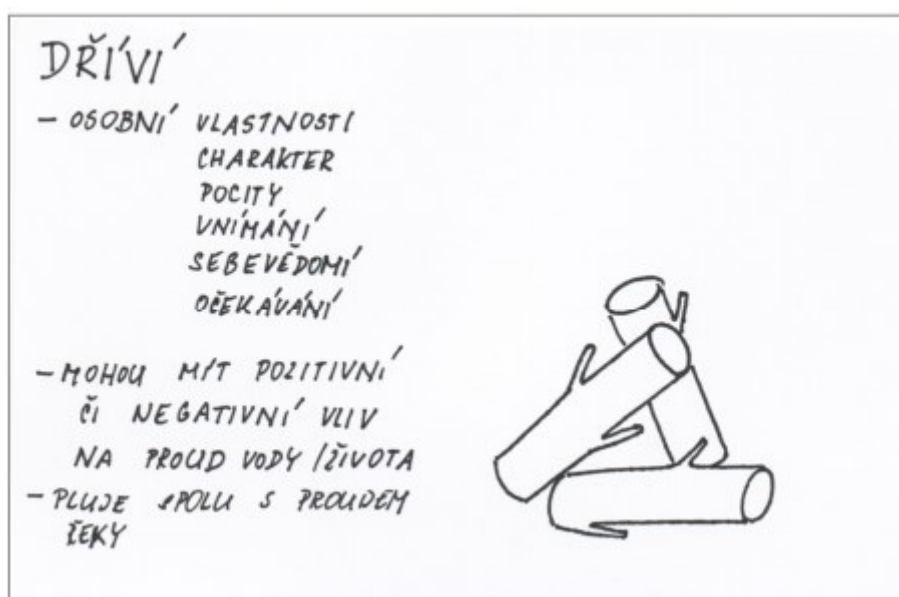 DŘÍVÍ
- OSOBNÍ VLASTNOSTI
CHARAKTER
POCITY
VNÍMÁNÍ
SEBEVĚDOMÍ
OČEKÁVÁNÍ
- MOHOU MÍT POZITIVNÍ
ČI NEGATIVNÍ VLIV
NA PROUD VODY/ŽIVOTA
- PLUJE SPOLU S PROUDEM
ŘEKY